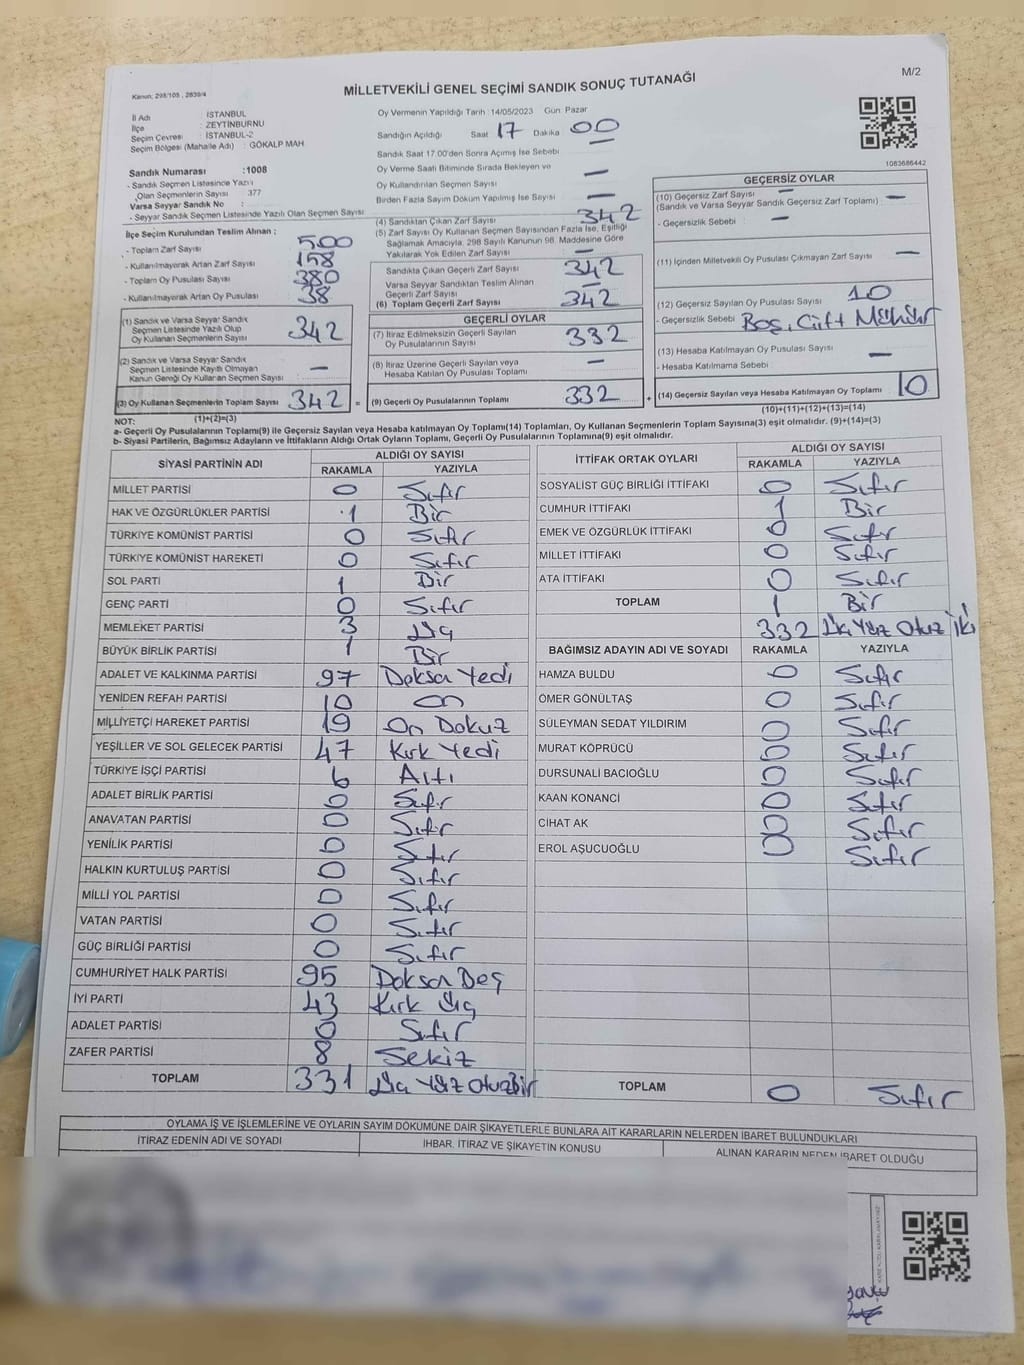 Kanun: 298/105 , 2839/4
MİLLETVEKİLİ GENEL SEÇİMİ SANDIK SONUÇ TUTANAĞI
M/2
İl Adı : İSTANBUL
İlçe : ZEYTİNBURNU
Seçim Çevresi : İSTANBUL-2
Seçim Bölgesi (Mahalle Adı) : GÖKALP MAH
Sandık Numarası :1008
- Sandık Seçmen Listesinde Yazılı
Olan Seçmenlerin Sayısı 377
Varsa Seyyar Sandık No :
- Seyyar Sandık Seçmen Listesinde Yazılı Olan Seçmen Sayısı
İlçe Seçim Kurulundan Teslim Alınan ;
- Toplam Zarf Sayısı 500
- Kullanılmayarak Artan Zarf Sayısı 158
- Toplam Oy Pusulası Sayısı 380
- Kullanılmayarak Artan Oy Pusulası 38
(1) Sandık ve Varsa Seyyar Sandık
Seçmen Listesinde Yazılı Olup
Oy Kullanan Seçmenlerin Sayısı 342
(2) Sandık ve Varsa Seyyar Sandık
Seçmen Listesinde Kayıtlı Olmayan
Kanun Gereği Oy Kullanan Seçmen Sayısı : —
(3) Oy Kullanan Seçmenlerin Toplam Sayısı 342 =
(1)+(2)=(3)
Oy Vermenin Yapıldığı Tarih :14/05/2023 Gün: Pazar
Sandığın Açıldığı Saat 17 Dakika 00
Sandık Saat 17.00'den Sonra Açılmış İse Sebebi
Oy Verme Saati Bitiminde Sırada Bekleyen ve
Oy Kullandırılan Seçmen Sayısı —
Birden Fazla Sayım Döküm Yapılmış İse Sayısı —
(4) Sandıktan Çıkan Zarf Sayısı 342
(5) Zarf Sayısı Oy Kullanan Seçmen Sayısından Fazla İse, Eşitliği
Sağlamak Amacıyla, 298 Sayılı Kanunun 98. Maddesine Göre
Yakılarak Yok Edilen Zarf Sayısı —
Sandıkta Çıkan Geçerli Zarf Sayısı 342
Varsa Seyyar Sandıktan Teslim Alınan
Geçerli Zarf Sayısı —
(6) Toplam Geçerli Zarf Sayısı 342
GEÇERLİ OYLAR
(7) İtiraz Edilmeksizin Geçerli Sayılan
Oy Pusulalarının Sayısı 332
(8) İtiraz Üzerine Geçerli Sayılan veya
Hesaba Katılan Oy Pusulası Toplamı —
(9) Geçerli Oy Pusulalarının Toplamı 332 +
1083686442
GEÇERSİZ OYLAR
(10) Geçersiz Zarf Sayısı —
(Sandık ve Varsa Seyyar Sandık Geçersiz Zarf Toplamı) —
- Geçersizlik Sebebi : —
(11) İçinden Milletvekili Oy Pusulası Çıkmayan Zarf Sayısı —
(12) Geçersiz Sayılan Oy Pusulası Sayısı 10
- Geçersizlik Sebebi Boş, Çift Mühür
(13) Hesaba Katılmayan Oy Pusulası Sayısı —
- Hesaba Katılmama Sebebi
(14) Geçersiz Sayılan veya Hesaba Katılmayan Oy Toplamı 10
(10)+(11)+(12)+(13)=(14)
NOT:
a- Geçerli Oy Pusulalarının Toplam(9) ile Geçersiz Sayılan veya Hesaba katılmayan Oy Toplamı(14) Toplamları, Oy Kullanan Seçmenlerin Toplam Sayısına(3) eşit olmalıdır. (9)+(14)=(3)
b- Siyasi Partilerin, Bağımsız Adayların ve İttifakların Aldığı Ortak Oyların Toplamı, Geçerli Oy Pusulalarının Toplamına(9) eşit olmalıdır.
SİYASİ PARTİNİN ADI ALDIĞI OY SAYISI
RAKAMLA YAZIYLA
MİLLET PARTİSİ 0 Sıfır
HAK VE ÖZGÜRLÜKLER PARTİSİ 1 Bir
TÜRKİYE KOMÜNİST PARTİSİ 0 Sıfır
TÜRKİYE KOMÜNİST HAREKETİ 0 Sıfır
SOL PARTİ 1 Bir
GENÇ PARTİ 0 Sıfır
MEMLEKET PARTİSİ 3 Üç
BÜYÜK BİRLİK PARTİSİ 1 Bir
ADALET VE KALKINMA PARTİSİ 97 Doksan Yedi
YENİDEN REFAH PARTİSİ 10 On
MİLLİYETÇİ HAREKET PARTİSİ 19 On Dokuz
YEŞİLLER VE SOL GELECEK PARTİSİ 47 Kırk Yedi
TÜRKİYE İŞÇİ PARTİSİ 6 Altı
ADALET BİRLİK PARTİSİ 0 Sıfır
ANAVATAN PARTİSİ 0 Sıfır
YENİLİK PARTİSİ 0 Sıfır
HALKIN KURTULUŞ PARTİSİ 0 Sıfır
MİLLİ YOL PARTİSİ 0 Sıfır
VATAN PARTİSİ 0 Sıfır
GÜÇ BİRLİĞİ PARTİSİ 0 Sıfır
CUMHURİYET HALK PARTİSİ 95 Doksan Beş
İYİ PARTİ 43 Kırk Üç
ADALET PARTİSİ 0 Sıfır
ZAFER PARTİSİ 8 Sekiz
TOPLAM 331 Üç Yüz Otuz Bir
İTTİFAK ORTAK OYLARI ALDIĞI OY SAYISI
RAKAMLA YAZIYLA
SOSYALİST GÜÇ BİRLİĞİ İTTİFAKI 0 Sıfır
CUMHUR İTTİFAKI 1 Bir
EMEK VE ÖZGÜRLÜK İTTİFAKI 0 Sıfır
MİLLET İTTİFAKI 0 Sıfır
ATA İTTİFAKI 0 Sıfır
TOPLAM 1 Bir
332 Üç Yüz Otuz İki
BAĞIMSIZ ADAYIN ADI VE SOYADI RAKAMLA YAZIYLA
HAMZA BULDU 0 Sıfır
ÖMER GÖNÜLTAŞ 0 Sıfır
SÜLEYMAN SEDAT YILDIRIM 0 Sıfır
MURAT KÖPRÜCÜ 0 Sıfır
DURSUNALİ BACIOĞLU 0 Sıfır
KAAN KONANCİ 0 Sıfır
CİHAT AK 0 Sıfır
EROL AŞUCUOĞLU 0 Sıfır
TOPLAM 0 Sıfır
OYLAMA İŞ VE İŞLEMLERİNE VE OYLARIN SAYIM DÖKÜMÜNE DAİR ŞİKAYETLERLE BUNLARA AİT KARARLARIN NELERDEN İBARET BULUNDUKLARI
İTİRAZ EDENİN ADI VE SOYADI İHBAR, İTİRAZ VE ŞİKAYETİN KONUSU ALINAN KARARIN NEDEN İBARET OLDUĞU